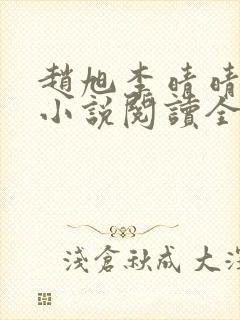 趙旭李晴晴
小說閱讀全
淺倉秋成 大